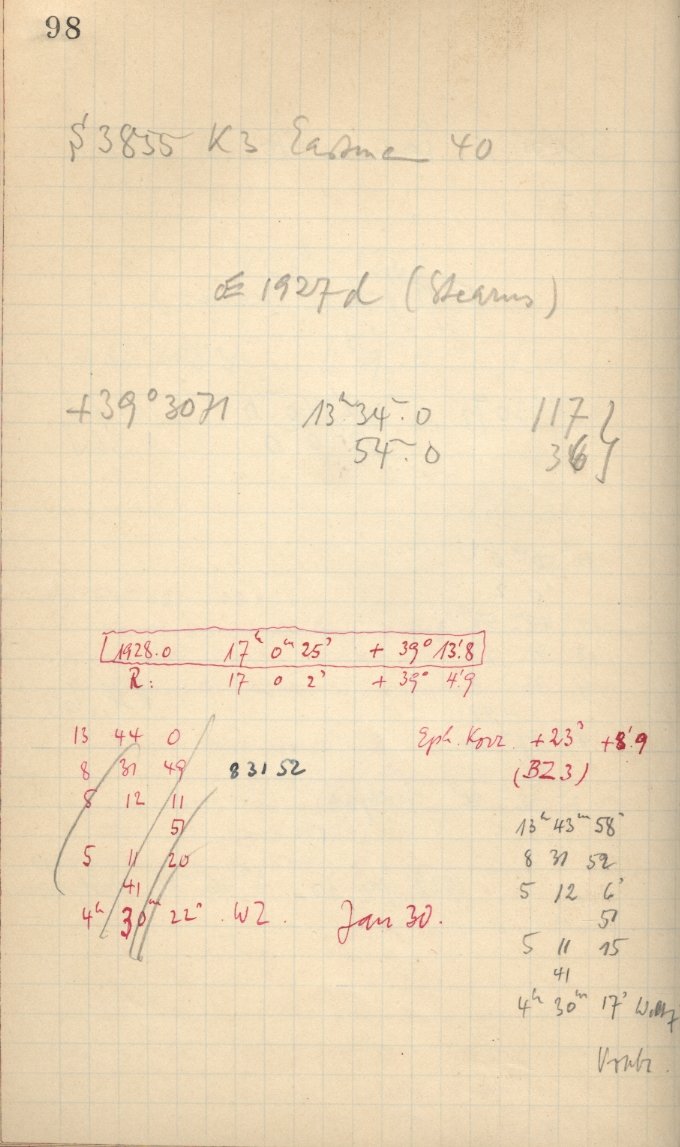 98
3855 K3 Eastman 40
1927d (Stearns)
+39° 3071 13ʰ 34ᵐ.0 117
54ᵐ.0 36
1928.0 17ʰ 0ᵐ 25ˢ + 39° 13'.8
R: 17 0 2ˢ + 39° 4'.9
13 44 0
8 31 49 8 31 52
8 12 11
51
5 11 20
41
4ʰ 30ᵐ 22ˢ WZ. Jan 30.
Eph. Korr. +23ˢ +8'.9
(BZ 3)
13ʰ 43ᵐ 58ˢ
8 31 52
5 12 6ˢ
51
5 11 15
41
4ʰ 30ᵐ 17ˢ